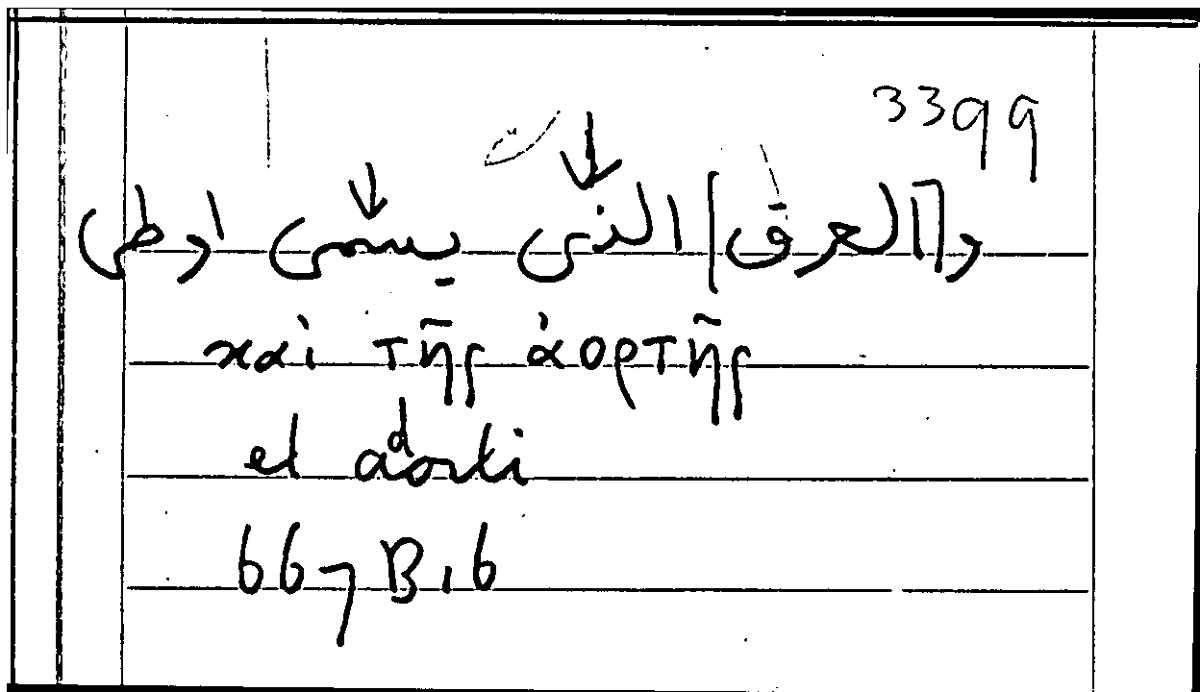 3399
و[العرق] الذى يسمى اورطى
καὶ τῆς ἀορτῆς
el adorti
667 B, 6